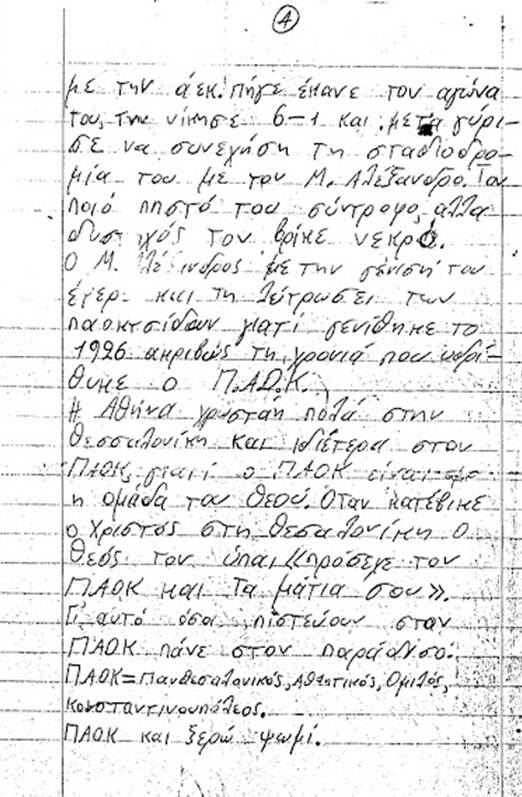 4
με την άεκ. Πήγε έκανε τον αγώνα
του, την νίκησε 6-1 και μετα γύρι-
σε να συνεχήση τη σταδιοδρο-
μία του με τον Μ. Αλέξανδρο. Τον
ποιό πηστό του σύντροφο, αλλα
δυστιχός τον βρίκε νεκρό.
Ο Μ. με την γένιση του
έφερ και τη λύτρωσει των
παοκτσίδων γιατί γενίθηκε το
1926 ακριβώς τη χρονιά που ιδρί-
θυκε ο Π.Α.Ο.Κ.
Η Αθήνα χρωστάη πολά στην
Θεσσαλονίκη και ιδιέτερα στον
ΠΑΟΚ, γιατί ο ΠΑΟΚ είναι
η ομάδα του Θεού. Όταν κατέβικε
ο Χριστός στη Θεσαλονίκη ο
Θεός του ύπαι «πρόσεχε τον
ΠΑΟΚ και τα μάτια σου».
Γι αυτό όσοι πιστεύουν σταν
ΠΑΟΚ πάνε στον παράδισο.
ΠΑΟΚ=Πανθεσαλονικός, Αθλητικός, Ομιλός,
Κωνσταντινουπόλεος.
ΠΑΟΚ και ξερώ ψωμί.